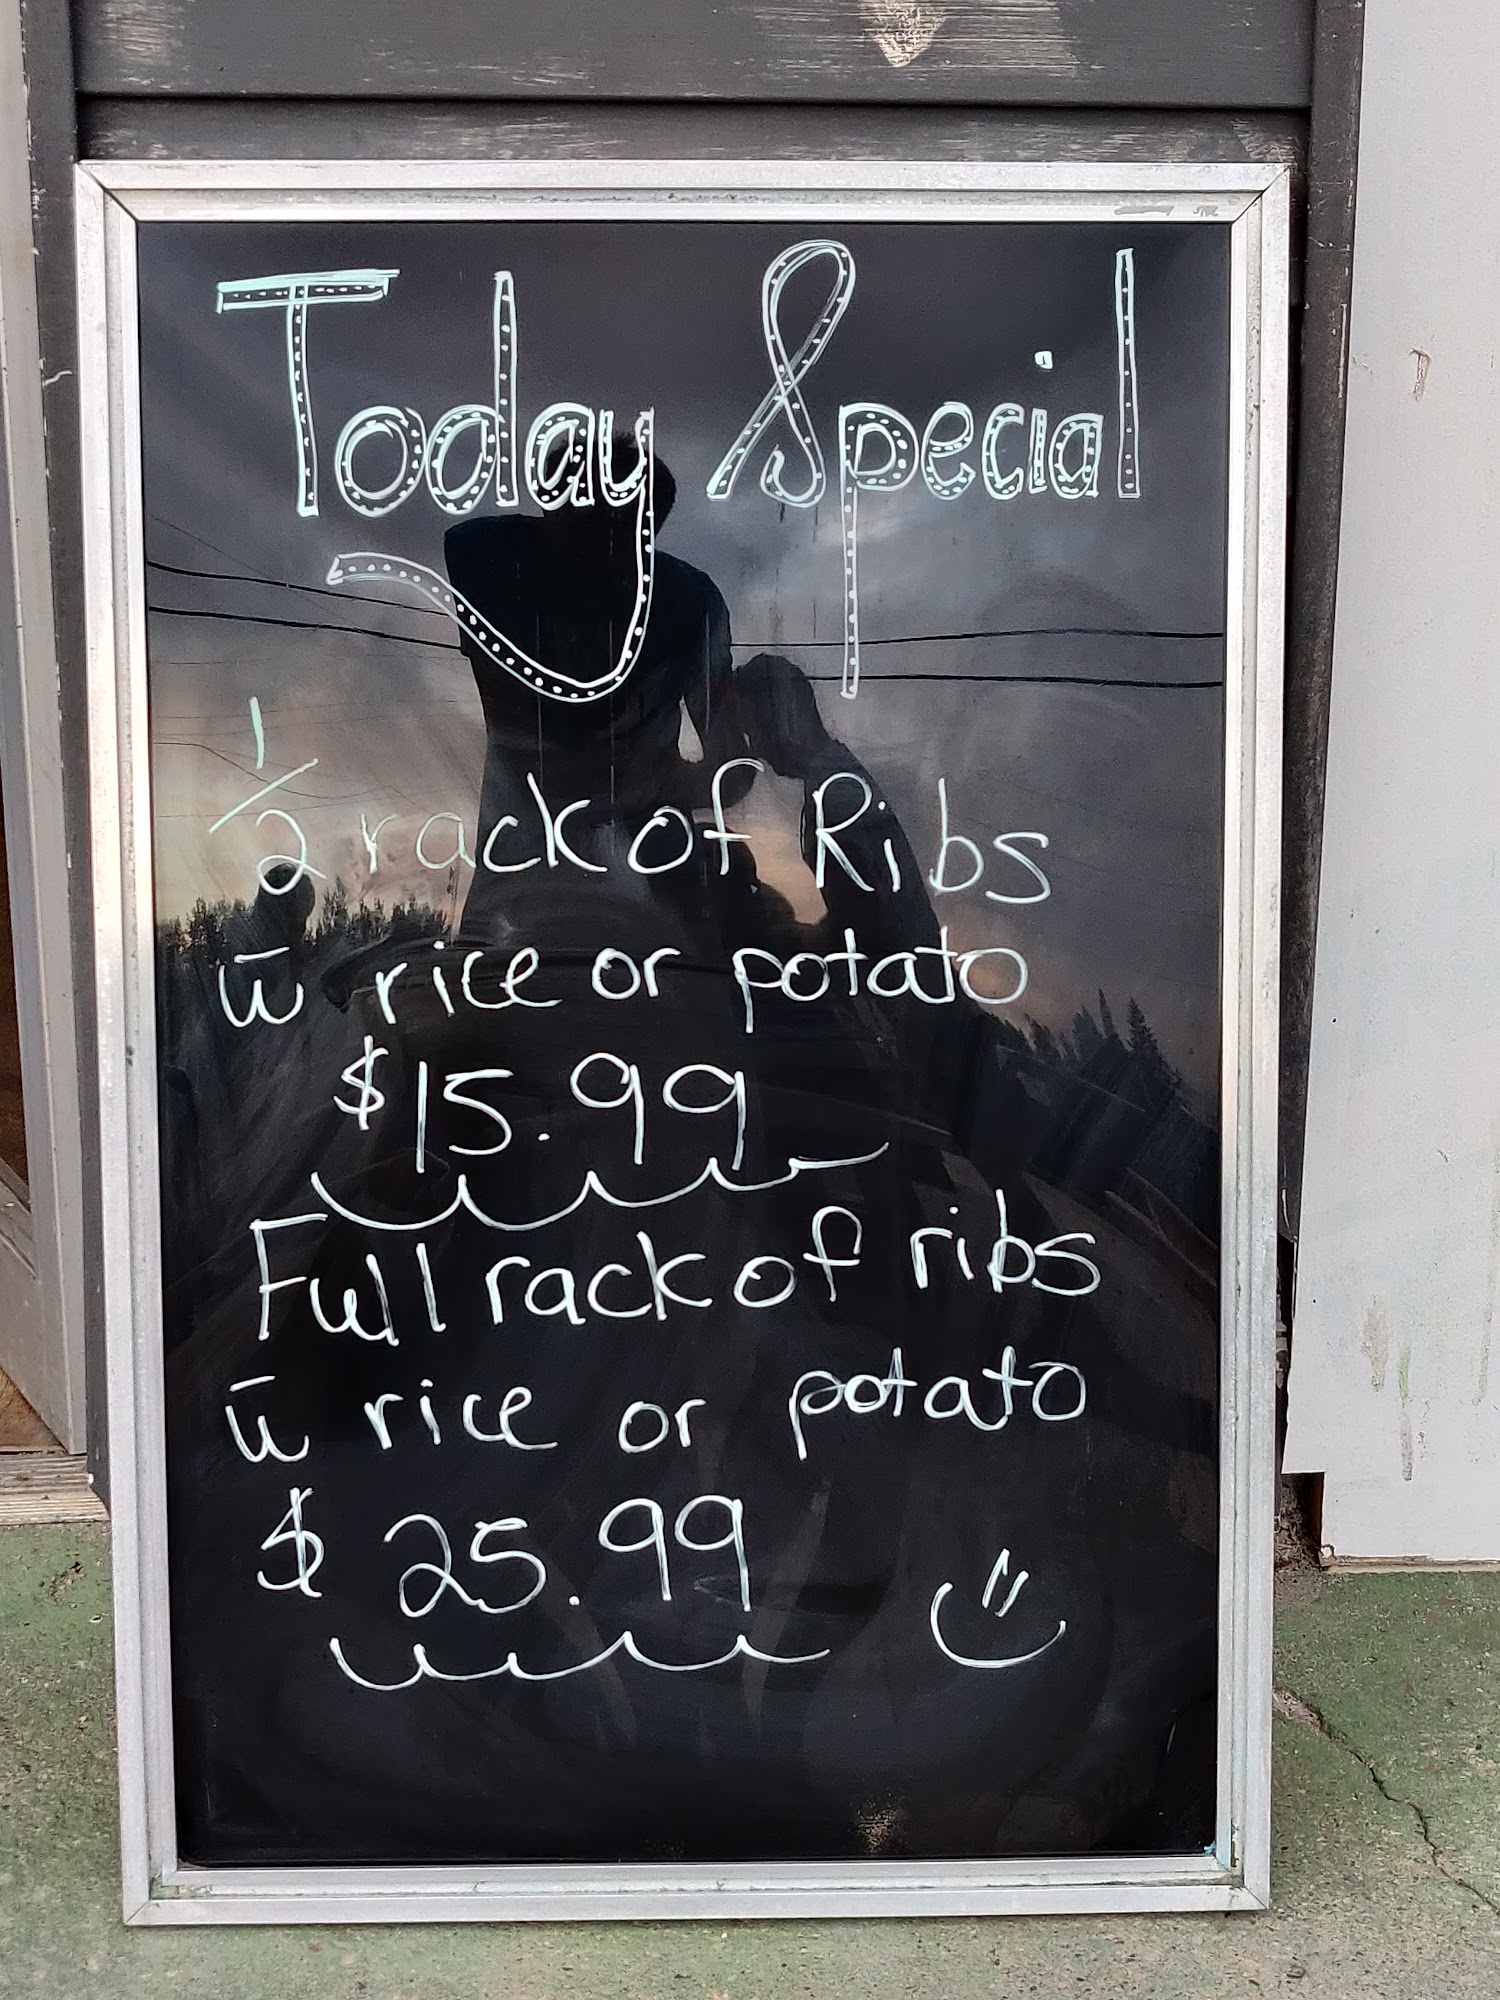 Today Special
1/2 rack of Ribs
w̄ rice or potato
$15.99
Full rack of ribs
w̄ rice or potato
$25.99